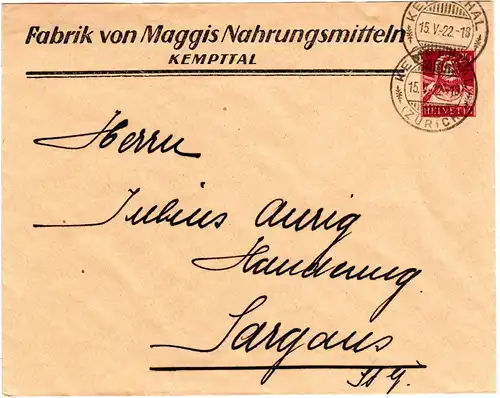 Fabrik von Maggis Nahrungsmitteln
KEMPTTAL
KEMPTTHAL
15.V.22.-18
KEMPTTHAL
15.V.22.-18
(ZÜRICH)
HELVETIA
Herrn
Julius Aurig
Handlung.
Sargans
St. G.